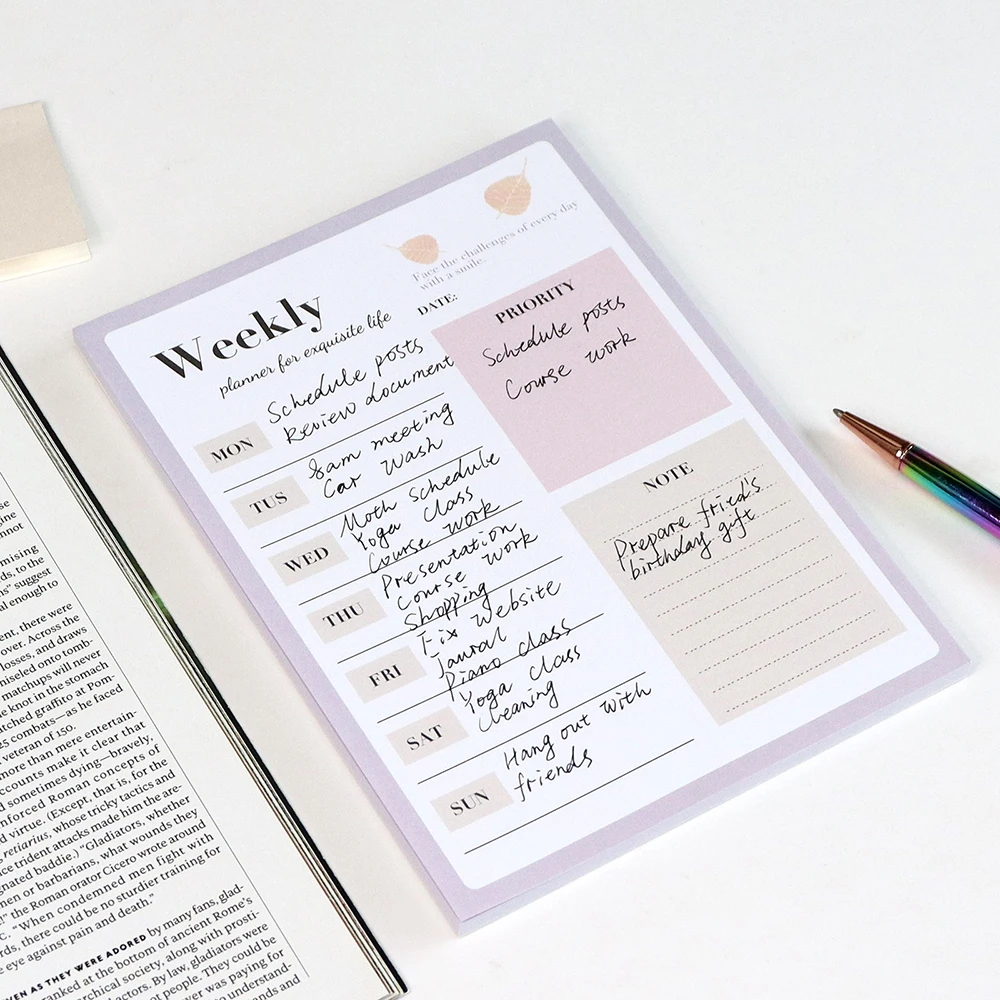 Face the challenges of every day
with a smile.
DATE:
Weekly
planner for exquisite life
MON
Schedule posts
Review document
TUS
8am meeting
Car wash
WED
Moth Schedule
Yoga class
Course work
THU
Presentation
Course work
Shopping
FRI
Fix website
Jaural
Piano class
SAT
Yoga class
Cleaning
SUN
Hang out with
friends
PRIORITY
Schedule posts
Course work
NOTE
Prepare fried's
birthday gift
se
gine
nnot
mising
ds, to the
ns" suggest
al enough to
ent, there were
over. Across the
losses, and draws
niseled onto tomb-
matchups will never
e knot in the stomach
tched graffito at Pom-
25 combats—as he faced
veteran of 150.
more than mere entertain-
accounts make it clear that
d sometimes dying—bravely,
nforced Roman concepts of
d virtue. (Except, that is, for the
retiarius, whose tricky tactics and
ce trident attacks made him the are-
gnated baddie.) "Gladiators, whether
nen or barbarians, what wounds they
!" the Roman orator Cicero wrote around
C. "When condemned men fight with
rds, there could be no sturdier training for
e eye against pain and death."
VEN AS THEY WERE ADORED by many fans, glad-
ranked at the bottom of ancient Rome's
archical society, along with prosti-
actors. By law, gladiators were
ot people. They could be
er was paying for
o understand-
ands and